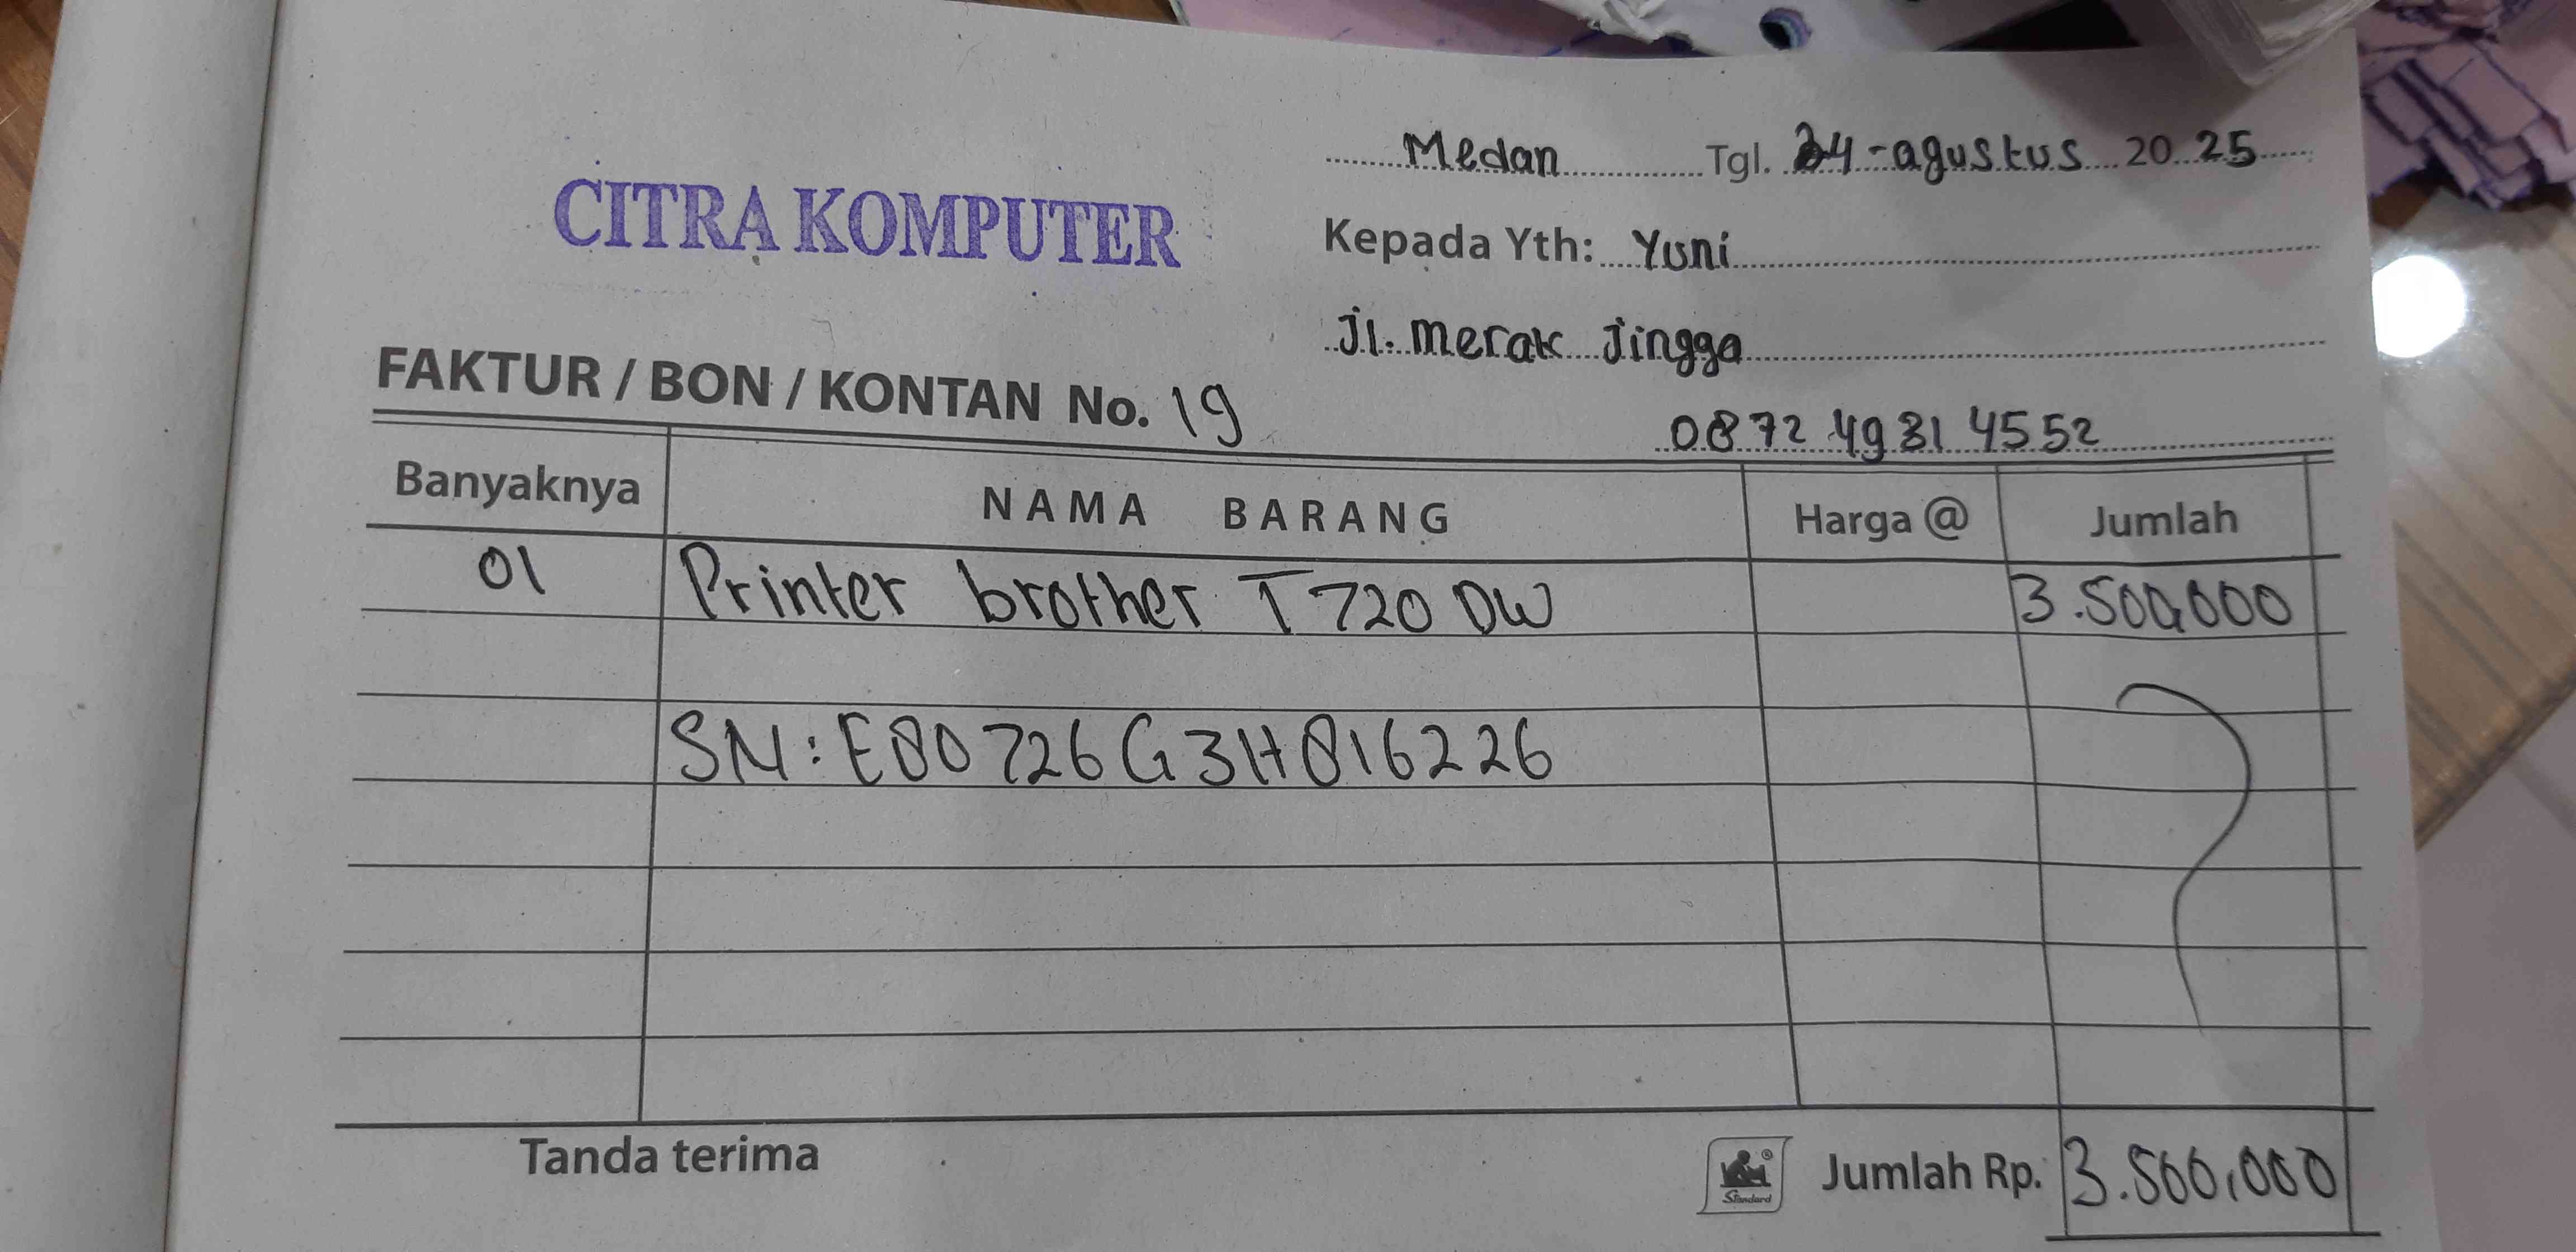 Medan Tgl. 24-agustus 2025
CITRA KOMPUTER
Kepada Yth: Yuni
Jl. Merak Jingga
FAKTUR / BON / KONTAN No. 19
0872 4931 4552
Banyaknya NAMA BARANG Harga @ Jumlah
01 Printer brother T720 DW 3.500,000
SN: E80726G3H816226
Tanda terima Standard Jumlah Rp. 3.500,000